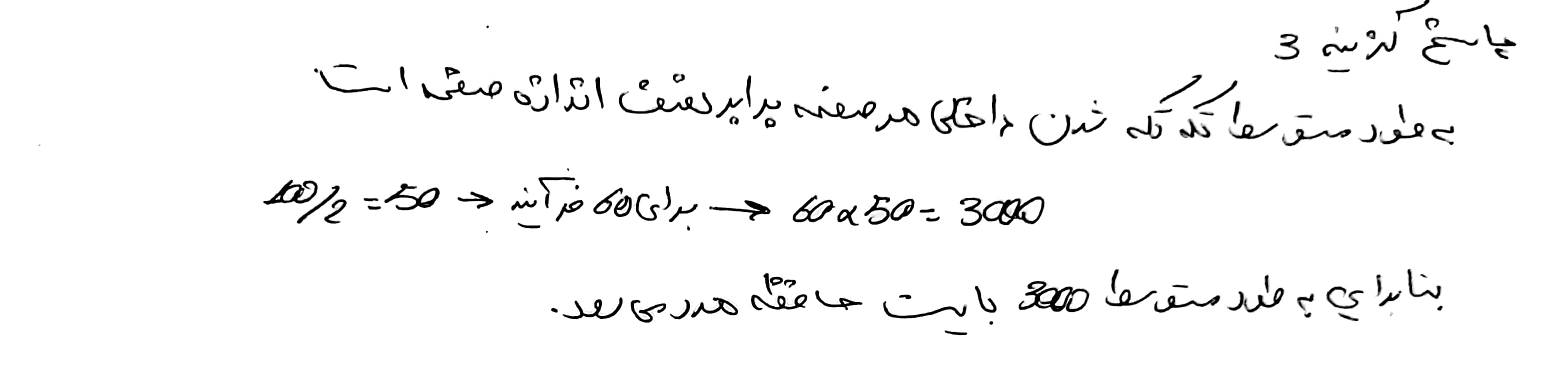 پاسخ گزینه 3
به طور متوسط تکه تکه شدن داخلی هر صفحه برابر نصف اندازه صفحه است.
100/2 = 50 → برای 60 فرآیند → 60 × 50 = 3000
بنابراین به طور متوسط 3000 بایت حافظه هدر می رود.